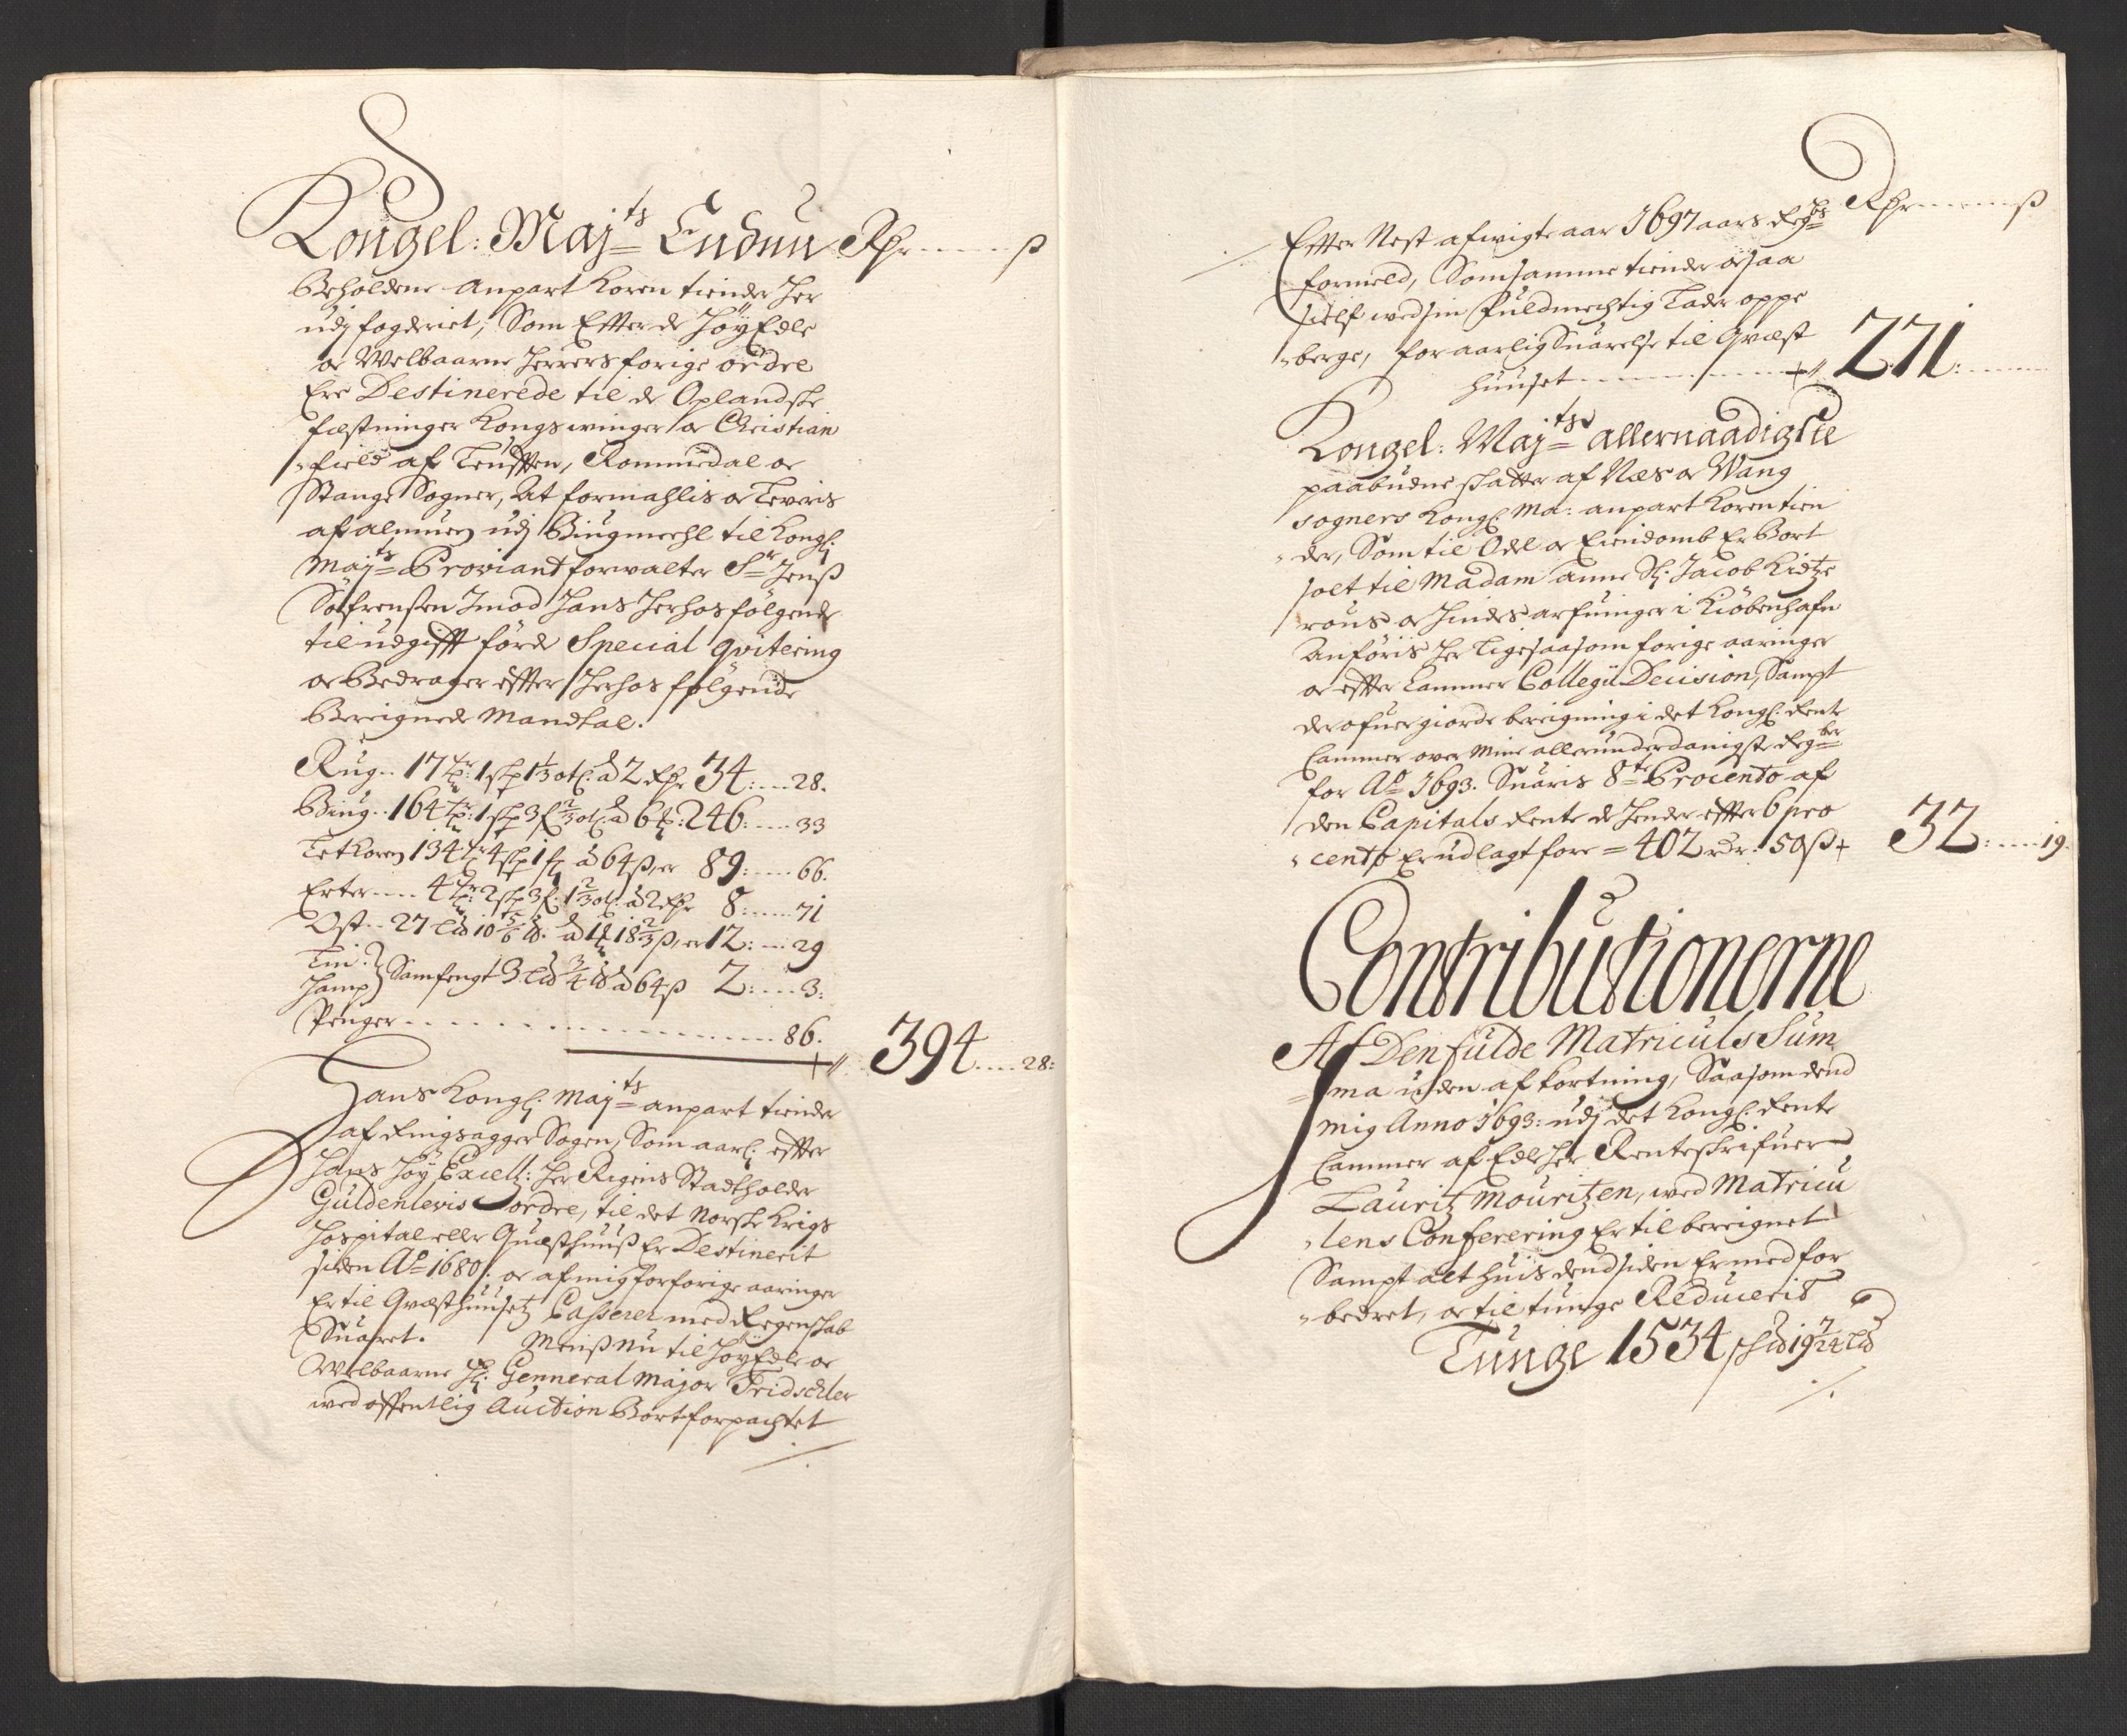 Kongel: Maj:ts Endnu Rdr ---- ß
Beholdene Anpart Koren tiender her
udj fogderiet, Som Effter de HøyEdle
oc Welbaarne Herrers forige ordre
Ere Destinerede til de Oplandske
fæstninger Kongswinger oc Christian
"field af Leuthen, Rommedal oc
Stange Sogner, At formahlis oc Leveris
af almuen udj Biugmeehl til Kongl:
Maj:ts Proviantforwalter Sr Jenß
Søfrensen Imod Hans Herhos følgende
til udgifft førde Special qvitering
oc Bedrager effter Herhos følgende
Beregnede Mandtal.
Rug .. 17 tr: 1 skp 1⅓ otl: à 2 Rdr 34: --- 28.
Biug .. 164 tr: 1 skp 3 f ⅔ otl: à 6 : 246: --- 33
Letkoren 134 tr 4 skp 1 f à 64 ß, er 89: --- 66.
Erter --- 4 tr: 2 skp 3 f: 1⅔ otl: à 2 Rdr 8: --- 71
Ost .. 27 Ld 10⅚ d: à 1 18⅔ ß, er 12: --- 29
Lin
Hamp } Samfengt 3 Ld ¾ d à 64 ß 2: --- 3:
Penger - - - - - - - - - - 86.
394 ---- 28:
Hans Kongl: Maj:ts anpart tiender
af Ringsagger Sogen, Som aarl: effter
Hans Høy Excell: Her Rigens Stadtholder
Güldenlewis Ordre, til det Norske Krigs
Hospital eller Quæsthuuß Er Destinerit
siden Ao 1680. oc af mig for forige aaringer
Er til Qvæsthuusetz Casserer med Regenskab
Suaret. Menß nu til HøyEdle oc
Welbaarne Hr: Genneral Major Tridschler
wed offentlig Auction Bortforpachtet
./.
Rdr ---- ß
Effter Nest afwigte aar 1697 aars Regbs
formeld, Som samme tiender ocsaa
sielf wed sin Fuldmechtig Lader oppe
"berge, for aarlig Suarelse til Qvæst
huuset - - - - - 271: ----
Kongel: Maj:ts allernaadigste
paabudne skatter af Næs oc Wang
sogners Kongl: Ma: anpart Korentien
"der, Som til Odel oc Eiendomb Er Bort
solt til Madam Anne Sl: Jacob Kietze
rous oc Hindes arfuinger i Kiøbenhafn
Anføris Her Ligesaa som forige aaringer
oc effter Cammer Collegii Decision, Sampt
derofuer giorde beregning i det Kongl: Rente
Cammer over Mine allerunderdanigste Regber
for Ao 1693. Suaris 8te Procento af
den Capitals Rente de Hender effter 6 pro
"cento Er udlagt fore = 402 rdr: 50 ß 32: --- 19.
Contributionerne
Af Den fulde Matriculs Sum
"ma uden afkortning, Saasom dend
mig Anno 1693: udj det Kongl: Rente
Cammer af Edle Her Renteskrifuer
Lauritz Mouritzen, wed Matricu
"lens Conferering Er tilberegnet
Sampt alt huis dend siden Ermed for
"bedret, oc til tunge Reduceris
Tunge 1534 skd 19 7/24 Ld
./.